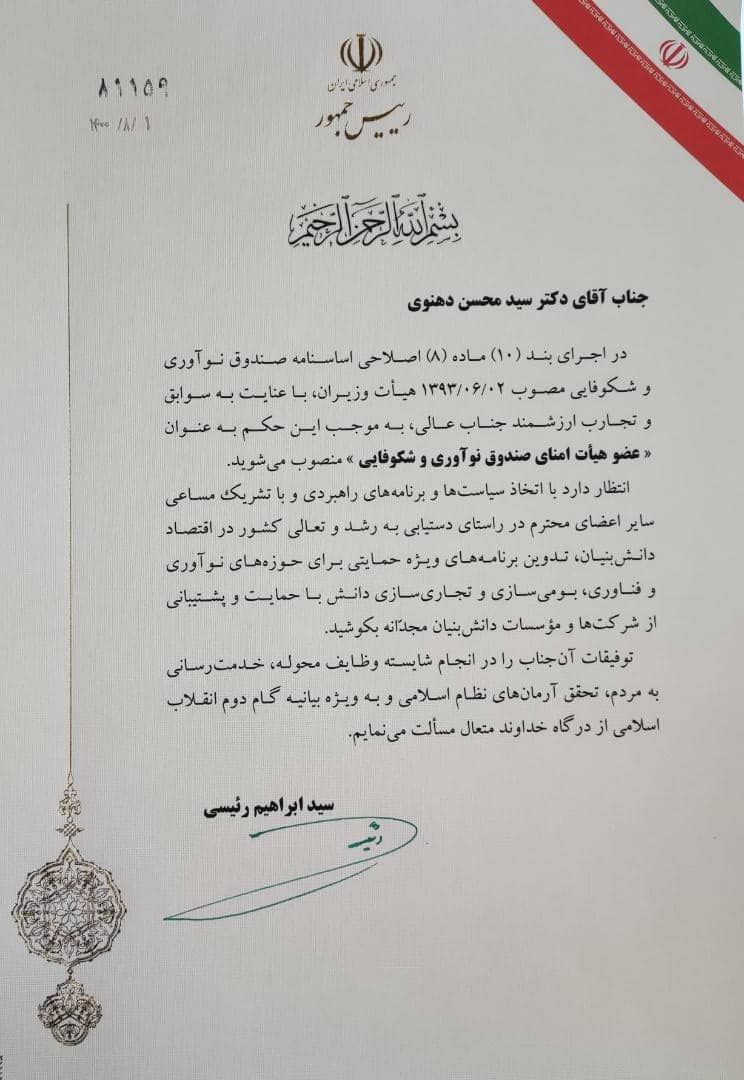 جمهوری اسلامی ایران
رییس جمهور
۸۱۱۵۹
۱۴۰۰/۸/۱
بسم الله الرحمن الرحیم
جناب آقای دکتر سید محسن دهنوی
در اجرای بند (۱۰) ماده (۸) اصلاحی اساسنامه صندوق نوآوری
و شکوفایی مصوب ۱۳۹۳/۰۶/۰۲ هیأت وزیران، با عنایت به سوابق
و تجارب ارزشمند جناب عالی، به موجب این حکم به عنوان
« عضو هیأت امنای صندوق نوآوری و شکوفایی » منصوب می‌شوید.
انتظار دارد با اتخاذ سیاست‌ها و برنامه‌های راهبردی و با تشریک مساعی
سایر اعضای محترم در راستای دستیابی به رشد و تعالی کشور در اقتصاد
دانش‌بنیان، تدوین برنامه‌های ویژه حمایتی برای حوزه‌های نوآوری
و فناوری، بومی‌سازی و تجاری‌سازی دانش با حمایت و پشتیبانی
از شرکت‌ها و مؤسسات دانش‌بنیان مجدّانه بکوشید.
توفیقات آن‌جناب را در انجام شایسته وظایف محوله، خدمت‌رسانی
به مردم، تحقق آرمان‌های نظام اسلامی و به ویژه بیانیه گام دوم انقلاب
اسلامی از درگاه خداوند متعال مسألت می‌نمایم.
سید ابراهیم رئیسی